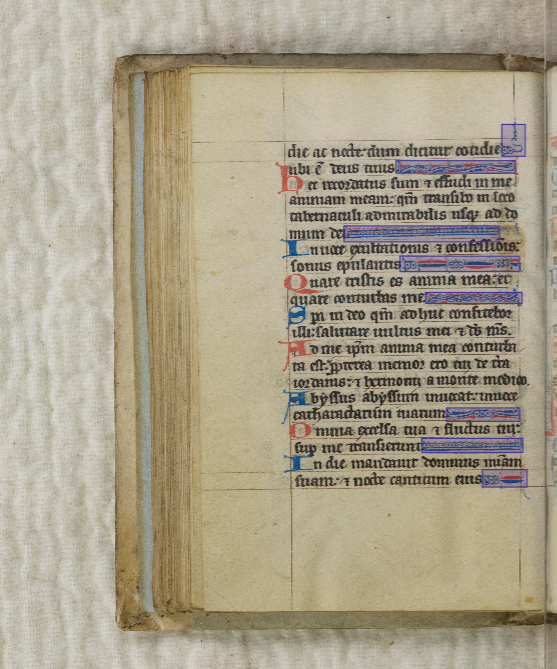 die ac nocte: dum dicitur cotidie
ubi ē deus tuus
Hec recordatus sum ⁊ effudi in me
animam meam: qm̄ transibo in loco
tabernaculi admirabilis usq; ad do
mum dei
In uoce exultationis ⁊ confessiōis:
sonus epulantis
Quare tristis es anima mea: et
quare conturbas me
Spa in deo qm̄ adhuc confitebor
illi: salutare uultus mei ⁊ ds̄ ms̄.
Ad me ip̄m anima mea conturba
ta est: ꝓpterea memor ero tui de t̄ra
iordanis: ⁊ hermonij a monte modico.
Abyssus abyssum inuocat: in uoce
catharactarum tuarum
Omnia excelsa tua ⁊ fluctus tui:
sup me transierunt
In die mandauit dominus mīam
suam: ⁊ nocte canticum eius